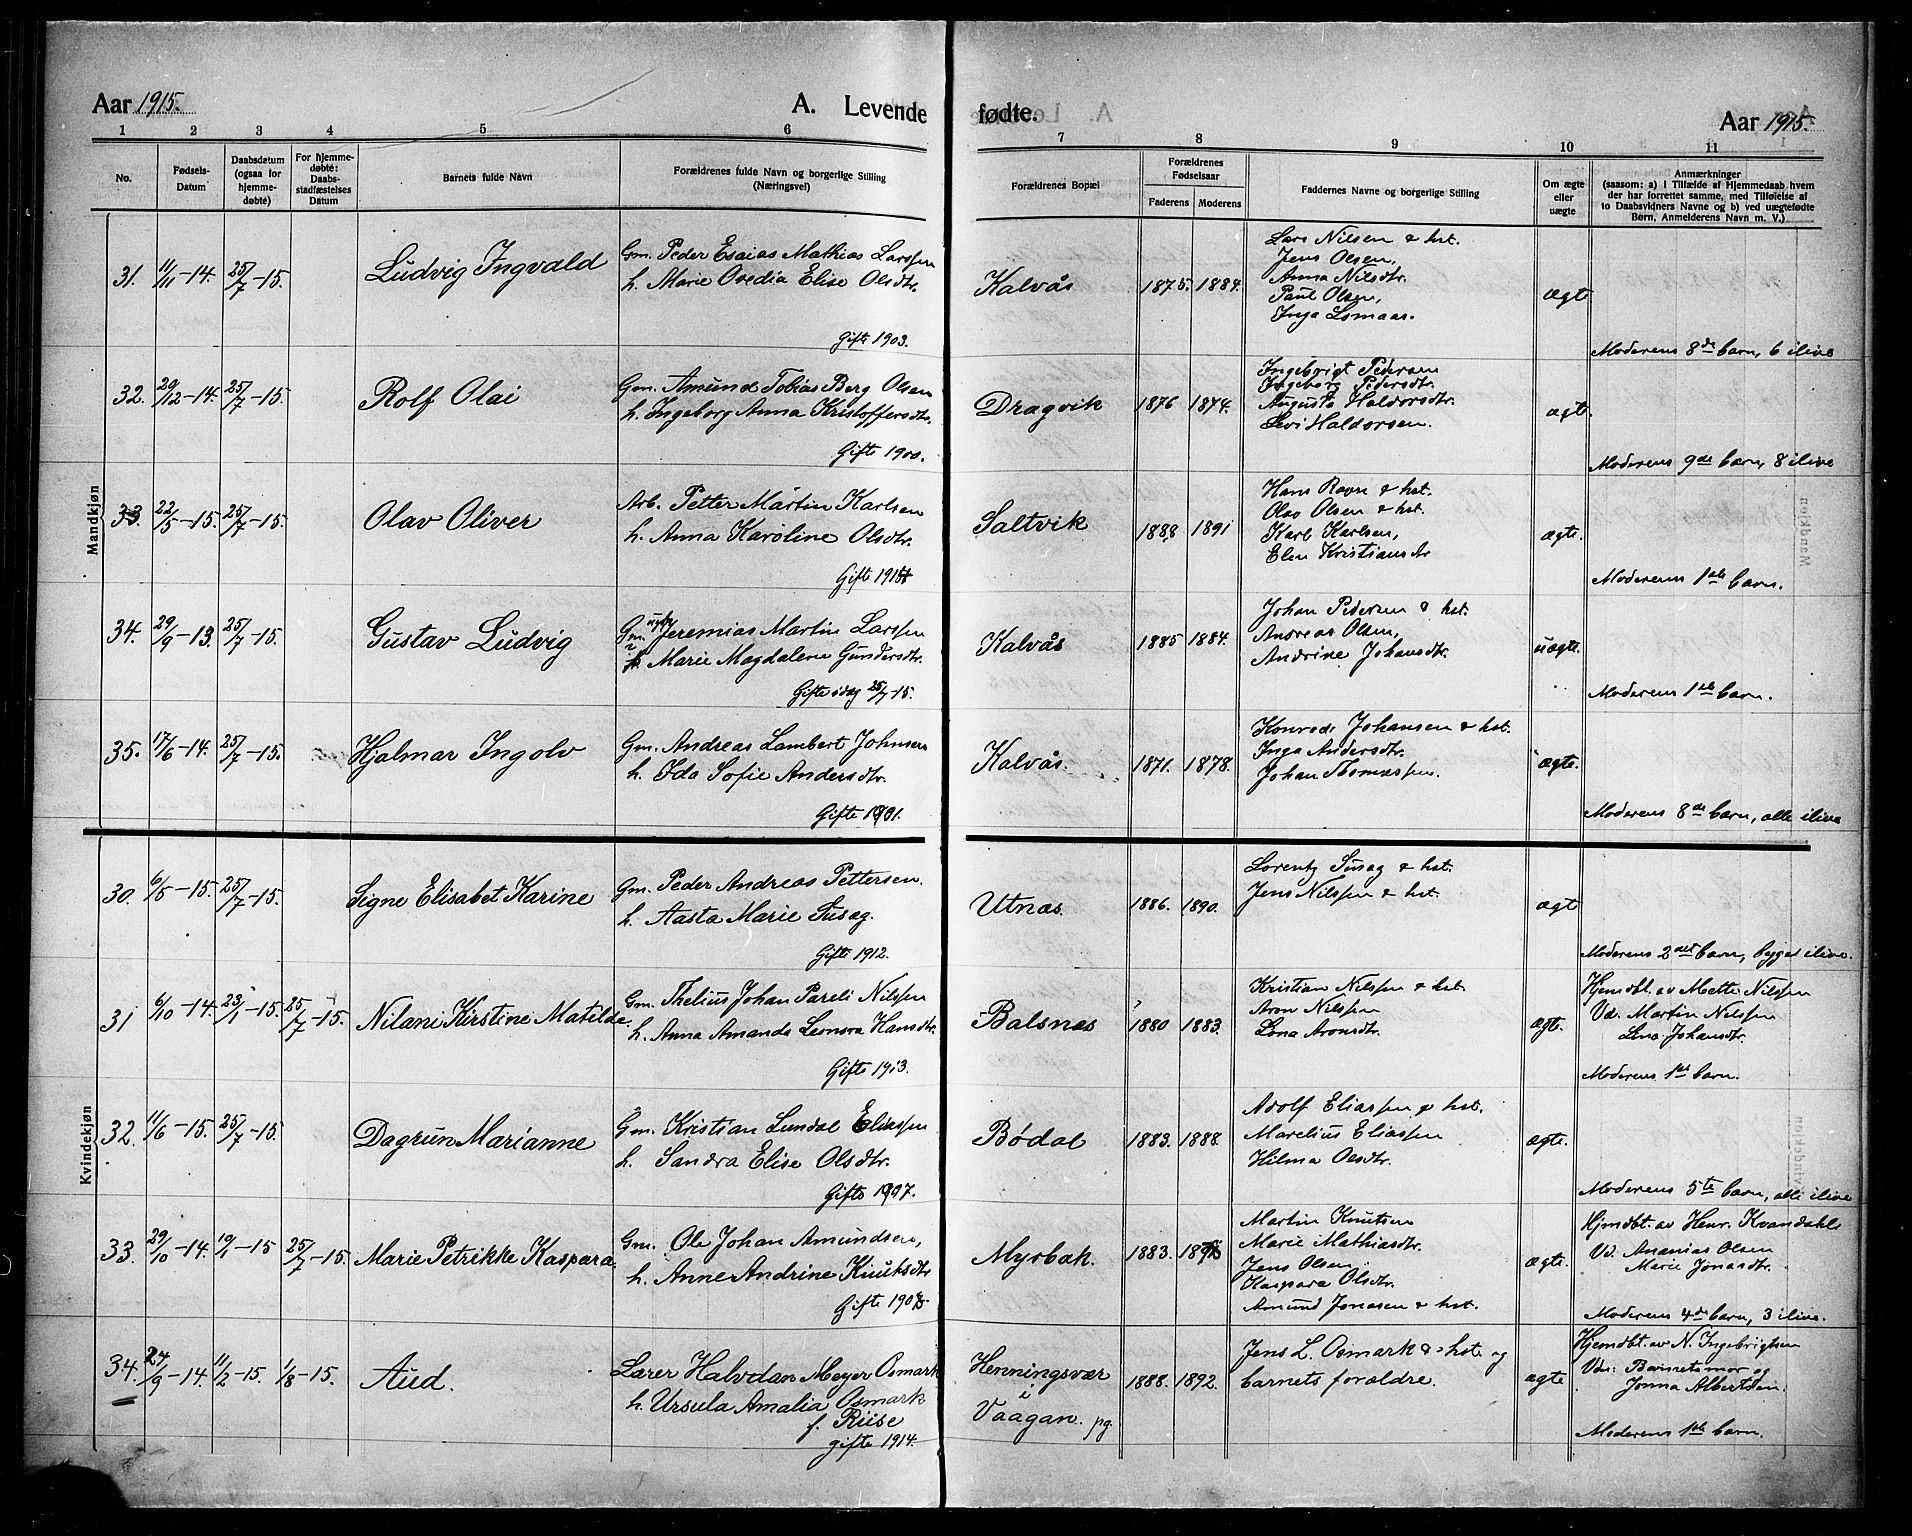 Aar 1915.
A. Levende
fødte.
Aar 1915.
1 2 3 4 5 6 7 8 9 10 11
No.
Fødsels-
Datum
Daabsdatum
(ogsaa for
hjemme-
døbte)
For hjemme-
døbte:
Daabs-
stadfæstelses
Datum
Barnets fulde Navn
Forældrenes fulde Navn og borgerlige Stilling
(Næringsvei)
Forældrenes Bopæl
Forældrenes
Fødselsaar
Faderens Moderens
Faddernes Navne og borgerlige Stilling
Om ægte
eller
uægte
Anmærkninger
(saasom: a) i Tilfælde af Hjemmedaab hvem
der har forrettet samme, med Tilføielse af
to Daabsvidners Navne og b) ved uægtefødte
Børn, Anmelderens Navn m. V.)
Mandkjøn
31. 11/11-14. 25/7-15. Ludvig Ingvald
Gm. Peder Esaias Mathias Larssen
h. Marie Ovedia Elise Olsdtr.
Gifte 1903.
Kalvås 1875. 1884.
Lars Nilsen & hst.
Jens Olsen,
Anna Nilsdtr.
Paul Olsen,
Inga Lomaas.
ægte
Moderens 8de barn, 6 ilive
32. 29/12-14. 25/7-15. Rolf Olai
Gm. Amund Tobias Berg Olsen
h. Ingeborg Anna Kristoffersdtr.
Gifte 1900.
Dragvik 1876 1874.
Ingebrigt Pedersen
Ingeborg Pedersdtr.
Augusta Haldorsdtr.
Levi Haldorsen.
ægte.
Moderens 9de barn, 8 ilive
33. 22/5-15. 25/7-15. Olav Oliver
Arb. Petter Mårtin Karlsen
h. Anna Karoline Olsdtr.
Gifte 1914
Saltvik 1888 1891
Hans Ravn & hst.
Olav Olsen & hst.
Karl Karlsen,
Elen Kristiansdtr
ægte.
Moderens 1ste barn.
34. 29/9-13. 25/7-15. Gustav Ludvig
Gm. Jeremias Martin Larssen
Marie Magdalene Gundersdtr.
Gifte idag 25/7-15.
Kalvås 1885 1884.
Johan Pedersen & hst.
Andreas Olsen,
Andrine Johansdtr.
uægte.
Moderens 1ste barn.
35. 17/6-14. 25/7-15. Hjalmar Ingolv
Gm. Andreas Lambert Johnsen
h. Ida Sofie Andersdtr.
Gifte 1901.
Kalvås. 1871. 1878.
Konrad Johansen & hst.
Inga Andersdtr.
Johan Thomassen.
ægte.
Moderens 8de barn, alle ilive
Kvindekjøn
30. 6/5-15. 25/7-15. Signe Elisabet Karine
Gm. Peder Andreas Pettersen.
h. Aasta Marie Susag.
Gifte 1912.
Utnes. 1886. 1890.
Lorentz Susag & hst.
Jens Nilssen & hst.
ægte
Moderens 2det barn, begge ilive.
31 6/10-14. 23/1-15. 25/7-15. Nilani Kirstine Matilde
Gm. Thelius Johan Pareli Nilssen
h. Anna Amanda Leonora Hansdtr.
Gifte 1913.
Balsnes 1880 1883.
Kristian Nilssen & hst.
Aron Nilssen
Lena Aronsdtr.
ægte.
Hjemdbt. av Mette Nilssen
Vd. Martin Nilssen
Lena Johansdtr.
Moderens 1ste barn.
32. 11/6-15. 25/7-15. Dagrun Marianne
Gm. Kristian Lundal Eliassen
h. Sandra Elise Olsdtr.
Gifte 1907.
Bødal 1883. 1888.
Adolf Eliassen & hst.
Marelius Eliassen
Hilma Olsdtr.
ægte.
Moderens 5te barn, alle ilive
33. 29/10-14. 19/1-15 25/7-15. Marie Petrikke Kaspara.
Gm. Ole Johan Amundsen,
h. Anne Andrine Knutsdtr
Gifte
Myrbak. 1883.
Martin Knutsen
Marie Mathiasdtr.
Jens Olsen
Kaspara Olsdtr.
Amund Jonasen & hst.
ægte.
Hjmdbt. av Henr. Kvandahl
Vd. Ananias Olsen
Marie Jonasdtr.
Moderens 4de barn, 3 ilive.
34. 24/9-14. 11/2-15. 1/8-15. Aud.
Lærer Halvdan Meyer Osmark
h. Ursula Amalia Osmark
f. Riise
gifte 1914.
Henningsvær
i
Vaagan. pg.
1888. 1892.
Jens L. Osmark & hst. og
barnets forældre.
ægte
Hjemdbt. av N. Ingebrigtsen
Vdn: Barnets mor og
Jonna Albertsen.
Moderens 1ste barn.